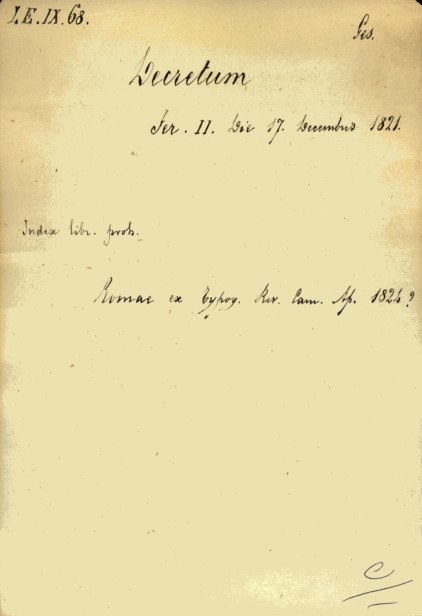 I.E.IX.68.
Ges.
Decretum
Fer. II. Die 17. Decembris 1821.
Index libr. proh.
Romae ex Typog. Rev. Cam. Ap. 1821?
C